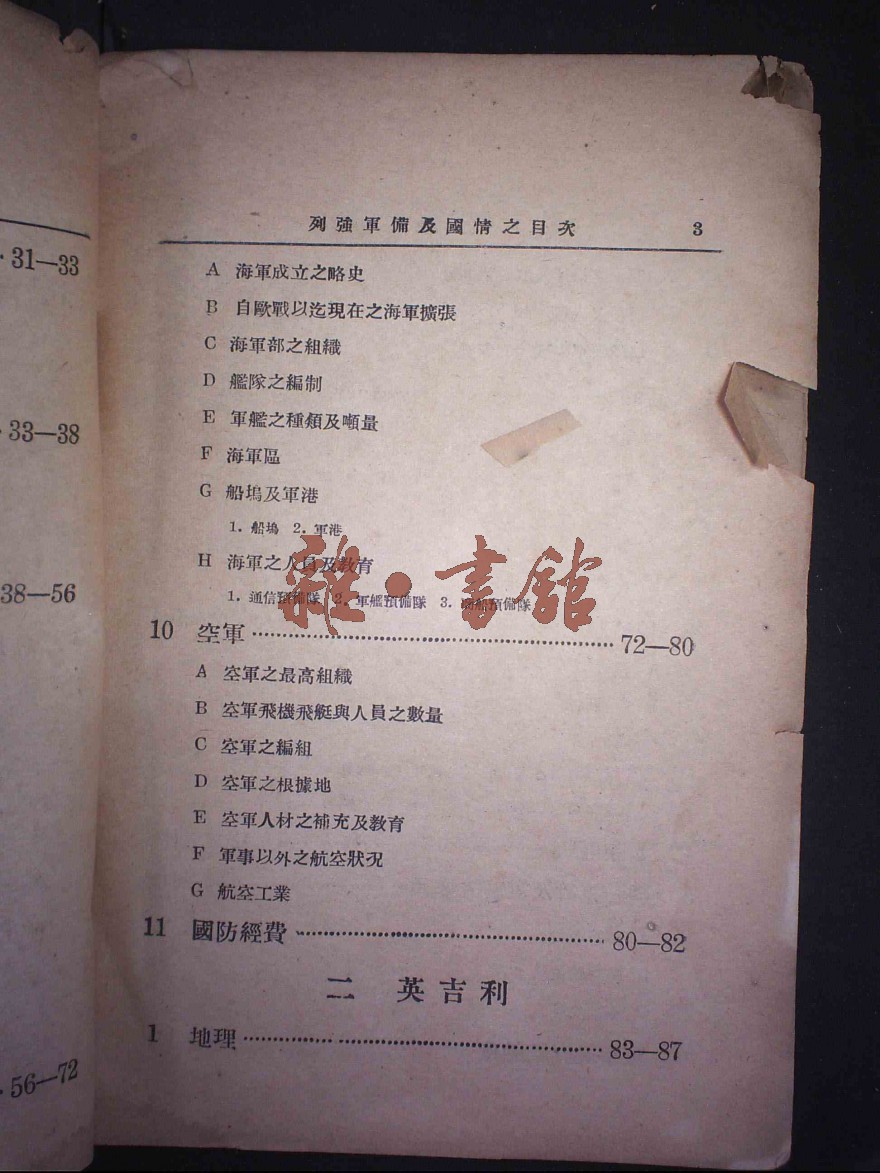 31—33
33—38
38—56
56—72
列強軍備及國情之目次 3
A 海軍成立之略史
B 自歐戰以迄現在之海軍擴張
C 海軍部之組織
D 艦隊之編制
E 軍艦之種類及噸量
F 海軍區
G 船塢及軍港
1. 船塢 2. 軍港
H 海軍之人員及教育
1. 通信預備隊 2. 軍艦預備隊 3. 商船預備隊
雜·書館
10 空軍 72—80
A 空軍之最高組織
B 空軍飛機飛艇與人員之數量
C 空軍之編組
D 空軍之根據地
E 空軍人材之補充及教育
F 軍事以外之航空狀况
G 航空工業
11 國防經費 80—82
二 英吉利
1 地理 83—87